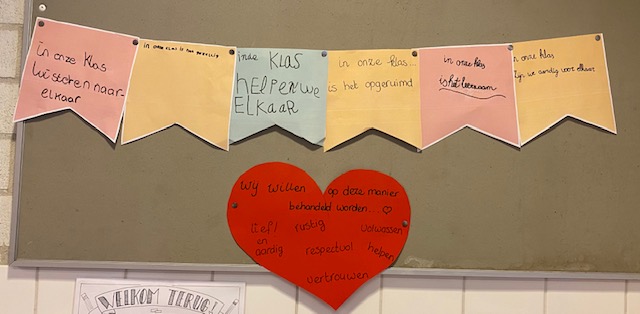 in onze klas
luisteren naar
elkaar
in onze klas is het gezellig
inde KLAS
hELPEN we
ELKAAR
in onze klas...
is het opgeruimd
in onze klas
is het leerzaam
in onze klas
zijn we aardig voor elkaar
Wij willen op deze manier
behandeld worden... ♡
lief! rustig volwassen
en
aardig respectvol helpen
vertrouwen
WELKOM TERUG!